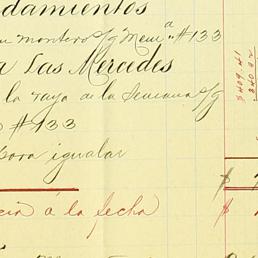 damientos
montero s/g Mem.ª #133
a Las Mercedes
la raya de la Semana s/g
#133
para igualar
cia á la fecha
$
$